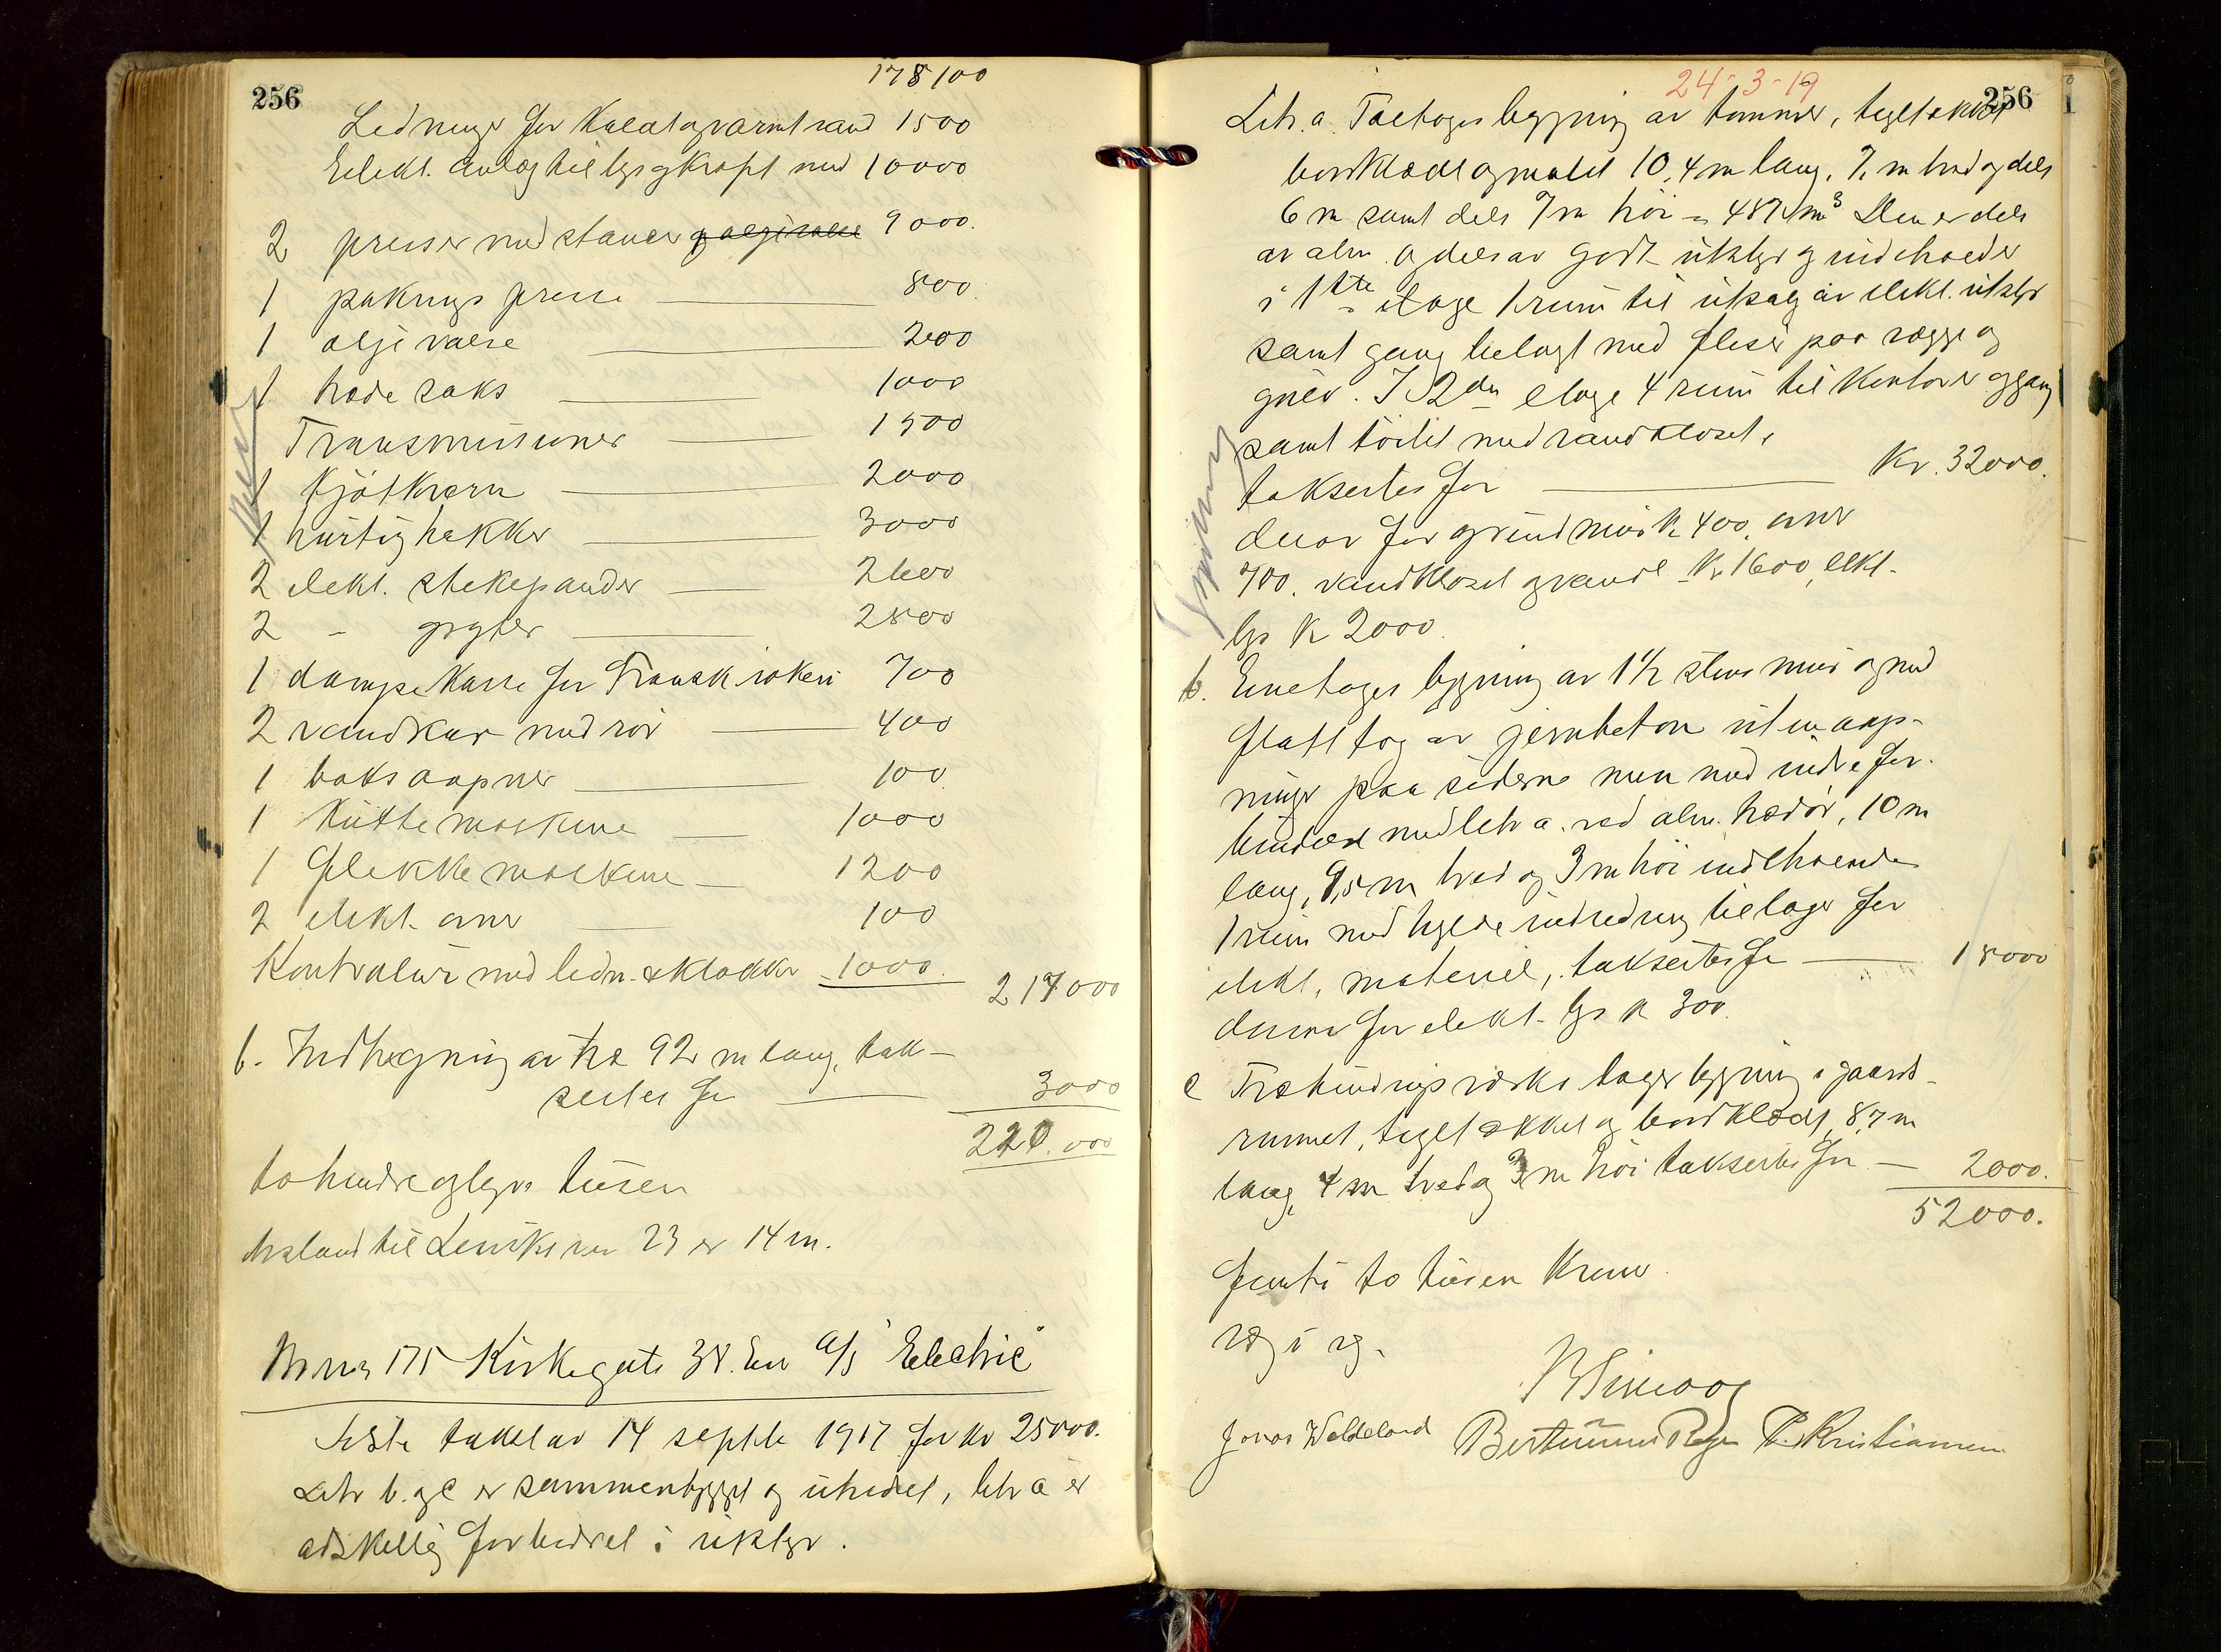 256
178100
Ledninger for Kaldt og varmt vand 1500
Elekt. anlæg til lys og kraft med 10000
2 presser med stanser og oljevalse 9000.
1 paknings presse 800
1 olje valse 200
1 hode saks 1000
Transmissioner 1500
1 Kjötkvern 2000
1 hurtighakker 3000
2 elekt. stekepander 2600
2 - gryter 2800
1 dampekasse for Fransk røkeri 700
2 vandkar med rör 400
1 boksaapner 100
1 Kuttemaskine 1000
1 flekkemaskine 1200
2 elekt. ovner 100
Kontrolur med ledn. & klokker 1000. 217000
b. Indhegning av træ 92 m lang, tak-
seres for 3000
220.000
to hundre og tyve tusen
Avstand til 23 er 14 m.
Mnr 175 Kirkegate 38. Eier A/S "Electric"
Siste takst av 14 septbr 1917 for kr 25000.
Litr b. og c er sammenbygget og utvidet, litr a er
adskillig forbedret i utstyr.
24-3-19
256
Litr. a. Toetages bygning av tømmer, tegltækket
bordklædt og malet 10,4 m lang, 7, m bred og dels
6 m samt dels 7 m höi = 487 m³ Den er dels
av alm. og dels av godt utstyr og indeholder
i 1ste etage 1 rum til utsalg av elekt. utstyr
samt gang belagt med fliser paa vægge og
gulv. I 2den etage 4 rum til Kontorer og gang
samt toilet med vandkloset,
takseres for Kr. 32000.
derav for grundmur k 400, ovner
700. vandkloset og vandl. Kr 1600, elekt.
lys Kr 2000.
b. Enetages bygning av 1½ stens mur og med
flatt tag av jernbeton uten aap-
ninger paa siderne men med indre for-
bindelse med litr a. ved alm. trædör, 10 m
lang, 9,5 m bred og 3 m höi indeholdende
1 rum med hylde indredning til lager for
elekt. materiel, takseres for 18000
derav for elekt. lys k 300.
c Træbindingsverks lagerbygning i gaards-
rummet, tegltækket og bordklædt, 8,7 m
lang, 4 m bred og 3 m höi takseres for 2000.
52000.
femti to tusen Kroner
Jonas Waldeland P. Kristiansen